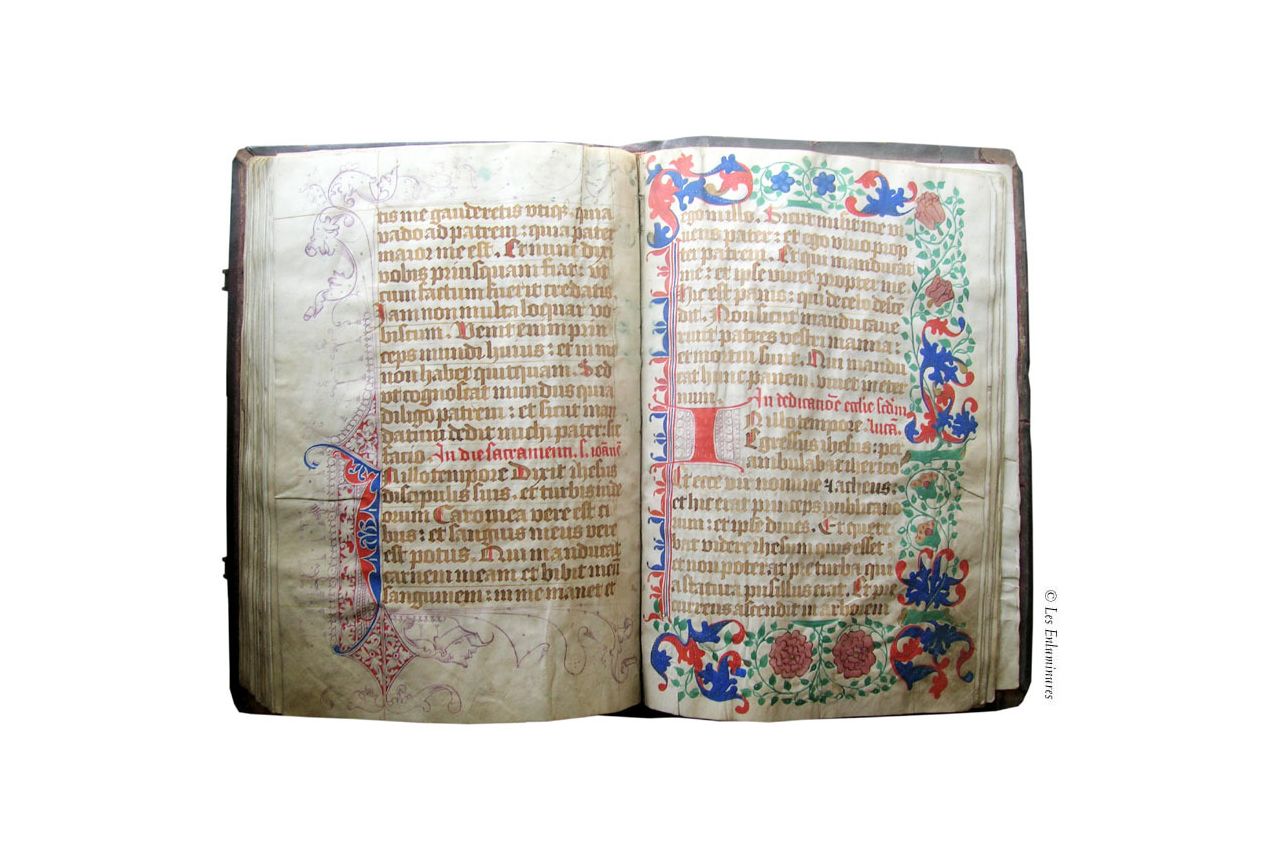 tis me gauderetis utiq; quia
vado ad patrem: quia pater
maior me est. Et nunc dixi
vobis priusquam fiat: ut
cum factum fuerit credatis.
Iam non multa loquar vo
biscum. Venit enim prin
ceps mundi huius: et in me
non habet quitquam. Sed
ut cognoscat mundus quia
diligo patrem: et sicut man
datum dedit michi pater: sic
facio. In die sacramenti. s. ioãnẽ
In illo tempore Dixit ihesus
discipulis suis. et turbis iude
orum Caro mea vere est ci
bus: et sanguis meus vere
est potus. Qui manducat
carnem meam et bibit meũ
sanguinem: in me manet et
ego in illo. Sicut misit me vi
vens pater: et ego vivo prop
ter patrem. Et qui manducat
me: et ipse vivet propter me
Hic est panis: qui de celo desce
dit. Non sicut manducave
runt patres vestri manna:
et mortui sunt. Qui mandu
cat hunc panem. vivet in eter
num. In dedicatiõe ecclie scdm
lucã.
In illo tempore
Egressus ihesus: per
ambulabat iherico
Et ecce vir nomine zacheus:
et hic erat princeps publicano
rum: et ipse dives. Et quere
bat videre ihesum quis esset:
et non poterat pre turba qui
a statura pusillus erat. Et pre
currens ascendit in arborem
© Les Enluminures